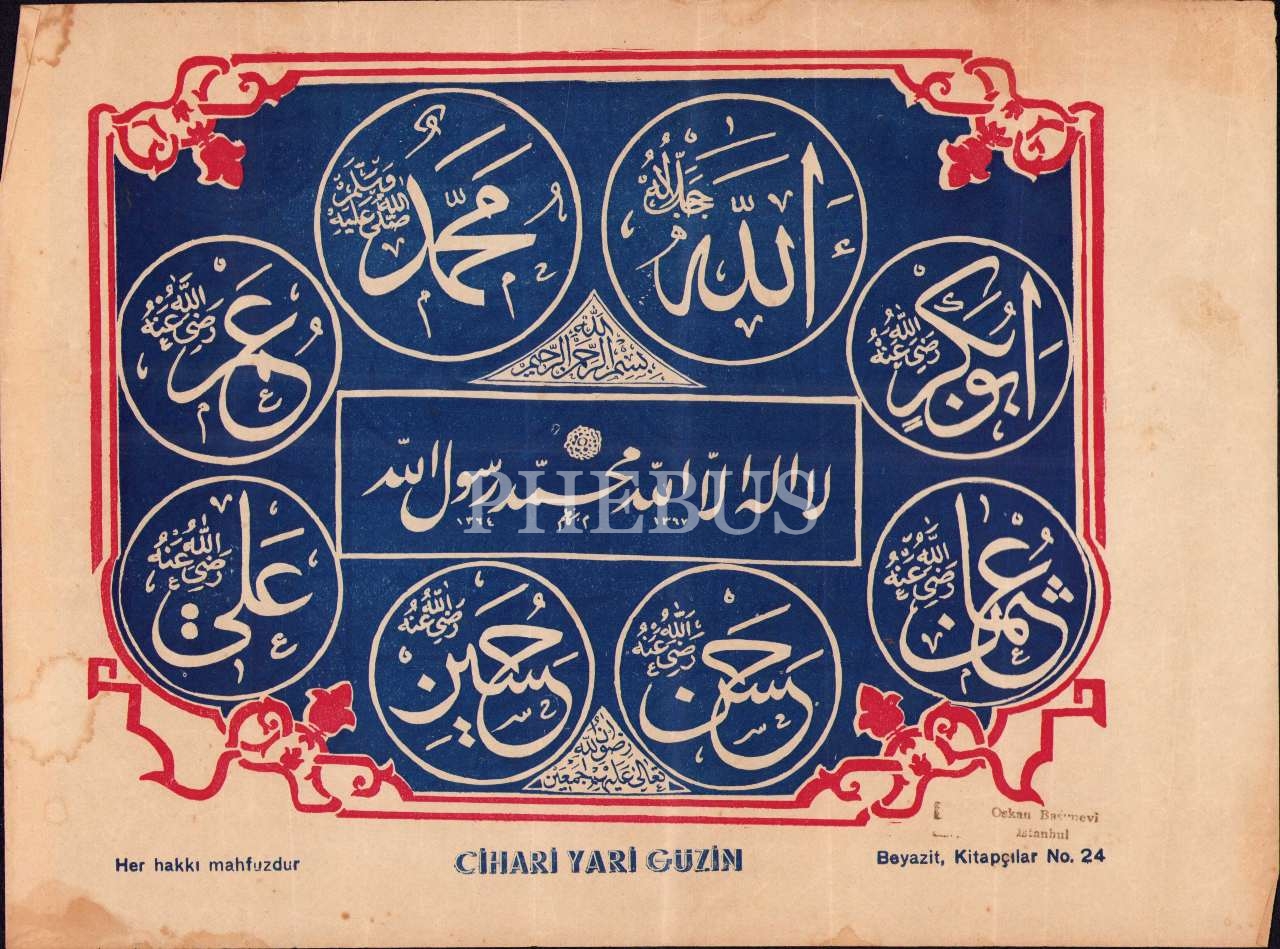 الله
جل جلاله
محمد
صلى الله عليه وسلم
ابو بكر
رضي الله عنه
عمر
رضي الله عنه
بسم الله الرحمن الرحيم
لا اله الا الله محمد رسول الله
١٣٦٤
PHEBUS
عثمان
رضي الله عنه
علي
رضي الله عنه
حسن
رضي الله عنه
حسين
رضي الله عنه
رضوان الله
تعالى عليهم اجمعين
Istanbul
Her hakkı mahfuzdur
CİHARİ YARİ GÜZİN
Beyazit, Kitapçılar No. 24